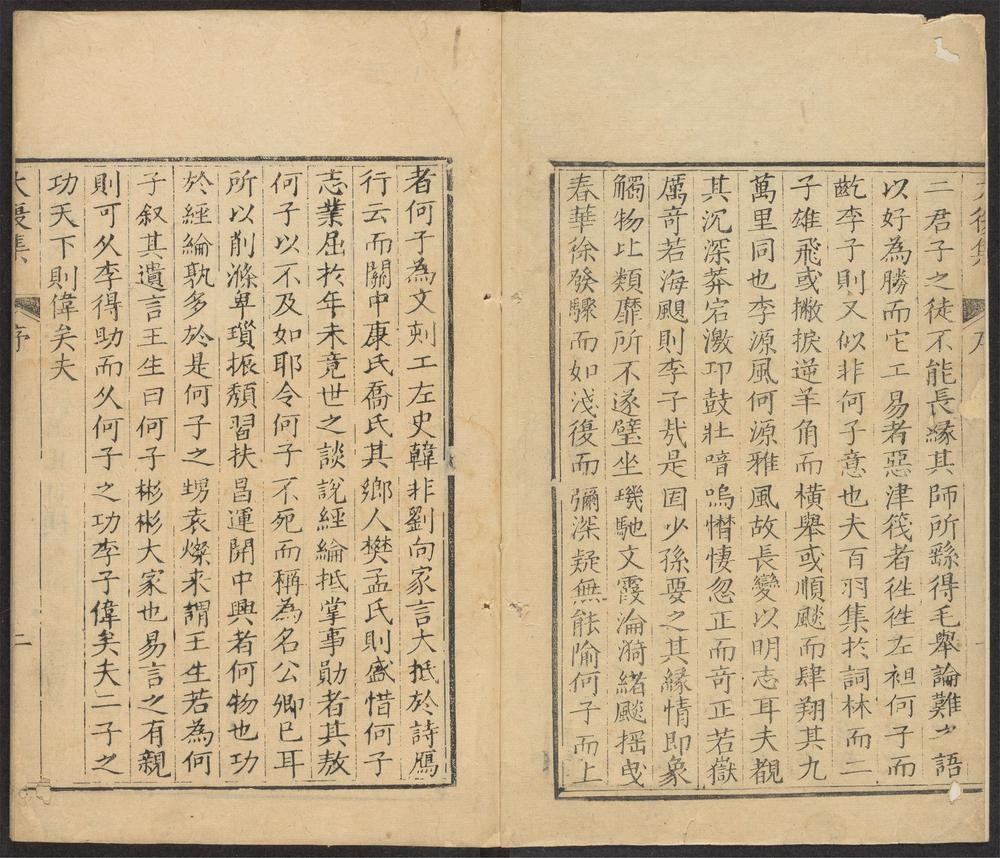 二君子之徒不能長緣其師所繇得毛舉論難少語
以好為勝而它工易者惡津筏者徃徃左袒何子而
齕李子則又似非何子意也夫百羽集於詞林而二
子雄飛或撇捩逆羊角而橫舉或順飇而肆翔其九
萬里同也李源風何源雅風故長變以明志耳夫覩
其沉深莽宕激卬鼓壯喑嗚憯悽忽正而竒正若嶽
厲竒若海颶則李子㢤是固少孫要之其緣情即象
觸物比類靡所不遂璧坐璣馳文霞淪漪緒飇揺曵
春華徐發驟而如淺復而彌深疑無能隃何子而上
者何子為文刻工左史韓非劉向家言大抵於詩鴈
行云而關中康氏喬氏其鄉人樊孟氏則盛惜何子
志業屈於年未竟世之談說經綸抵掌事勛者其敖
何子以不及如耶令何子不死而稱為名公卿已耳
所以削滌卑瑣振頹習扶昌運開中興者何物也功
於經綸孰多於是何子之甥袁燦来謂王生若為何
子叙其遺言王生曰何子彬彬大家也易言之有親
則可乆李得助而乆何子之功李子偉矣夫二子之
功天下則偉矣夫
大復集
序
二